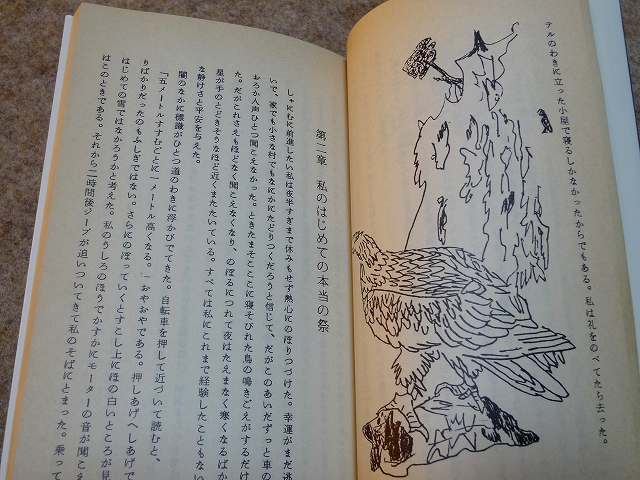 テルのわきに立った小屋で寝るしかなかったからでもある。私は礼をのべてたち去った。
第二章 私のはじめての本当の祭
しゃにむに前進したい私は夜半すぎまで休みもせず熱心にのぼりつづけた。幸運がまだ逃
いで、家でも小さな村でもなにかにたどりつくだろうと信じて、だがこのあいだずっと車の
おろか人声ひとつ聞こえなかった。ときたまそこここに寝そびれた鳥の鳴きごえがするだけ
た。だがこれさえもほどなく聞こえなくなり、のぼるにつれて夜はたえまなく寒くなるばか
星が手のとどきそうなほど近くまたたいている。すべては私にこれまで経験したこともない
な静けさと平安を与えた。
闇のなかに標識がひとつ道のわきに浮かびでてきた。自転車を押して近づいて読むと、
「五メートルすすむごとに一メートル高くなる。」おやおやである。押しあげへしあげで
りばかりだったのもふしぎではない。さらにのぼっていくとすこし上にほの白いところが見
はじめての雪ではなかろうかと考えた。私のうしろのほうでかすかにモーターの音が聞こえ
はこのときである。それから二時間後ジープが追いついてきて私のそばにとまった。乗って